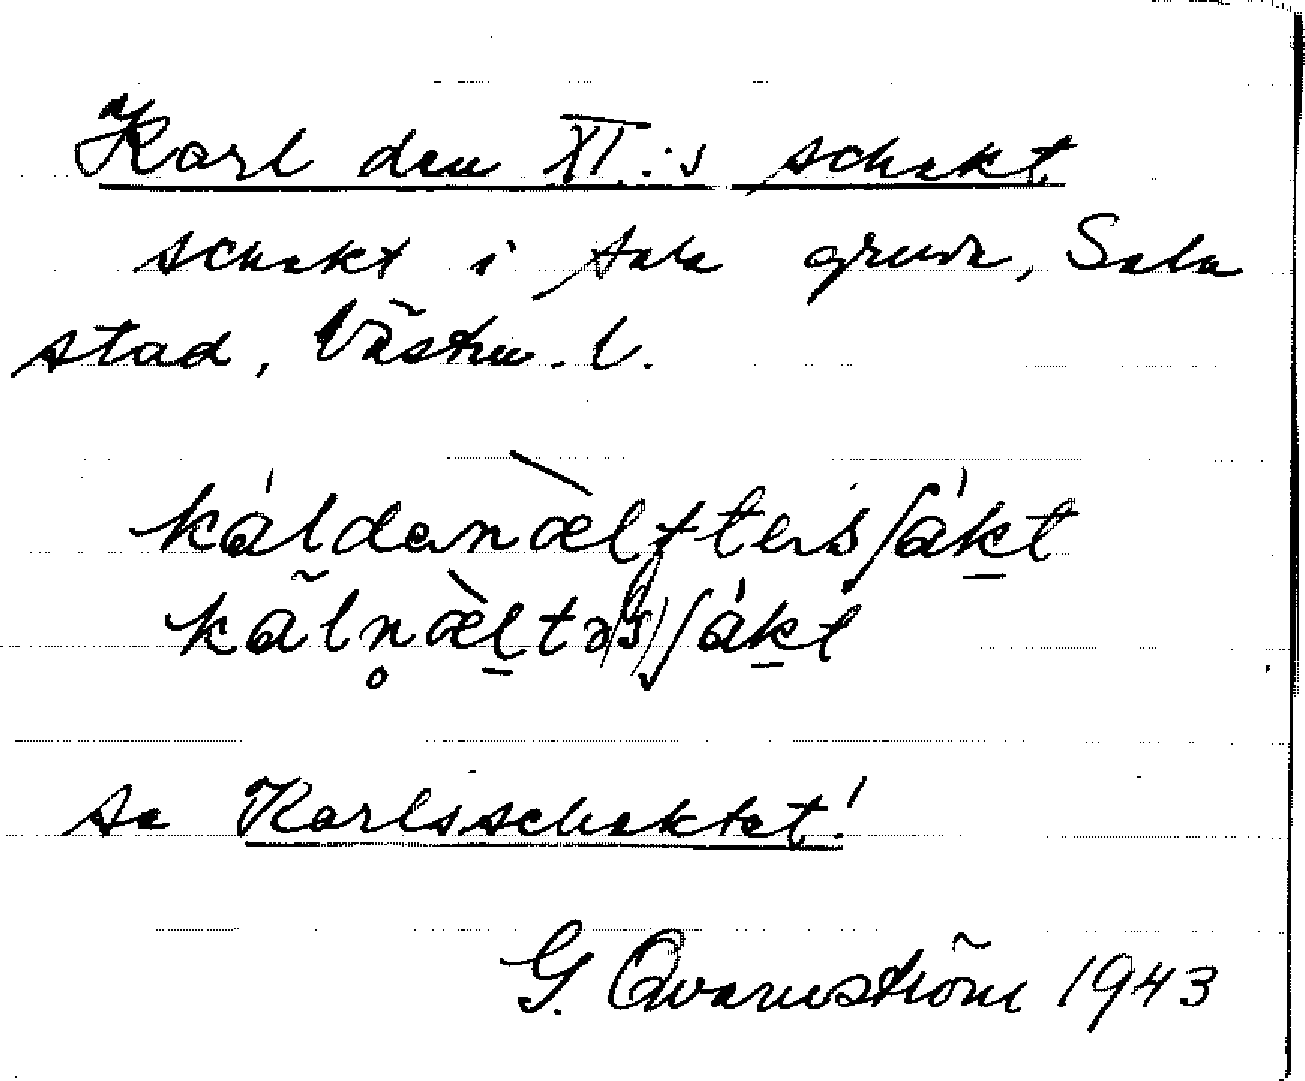 Karl den XI:s schakt
schakt i Sala gruva, Sala
stad, Västm. l.
káldenæ̀lftersʃákt
kãln̥æ̀ltəsʃákt
Se Karlsschaktet!
G. Qvarnström 1943